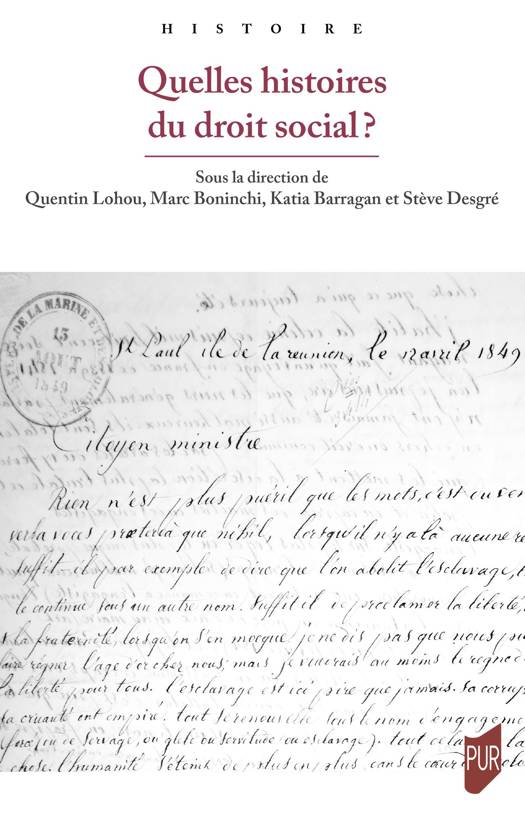 HISTOIRE
Quelles histoires
du droit social ?
Sous la direction de
Quentin Lohou, Marc Boninchi, Katia Barragan et Stève Desgré
DE LA MARINE ET
13
AOUT
1849
St Paul ile de la reunion, le 12 avril 1849
Citoyen ministre
Rien n'est plus puéril que les mots, c'est
verba voces prætereà que nihil, lorsqu'il n'y a là aucune
suffit il par exemple de dire que l'on abolit l'esclavage,
le continue sous un autre nom. Suffit il de proclamer la liberté,
la fraternité, lorsqu'on s'en mocque je ne dis pas que nous
faire regner l'age d'or chez nous, mais je voudrais au moins le regne d
la liberté pour tous. l'esclavage est ici pire que jamais. sa
sa cruauté ont empiré. tout se renouvelle sous le nom d'engageme
de servage, ou glebe ou servitude ou esclavage). tout cela la
chose. l'humanité s'éteint de plus en plus dans le cœur
PUR